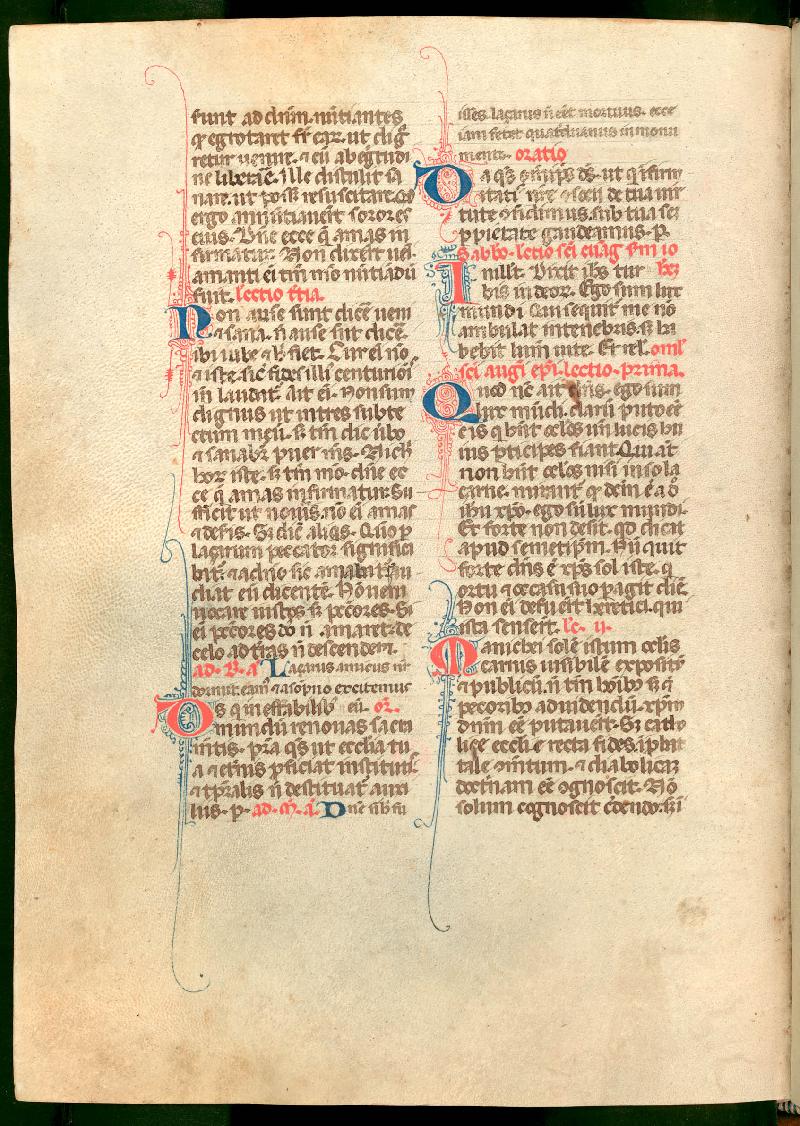 sunt ad dnm nuntiantes
qꝛ egrotaret fr eaꝝ. ut dig̃
retur uenire. ⁊ eũ ab egritudi
ne liberaꝛe. Ille distulit sa
nare. ut posset resuscitare.
ergo annuntiauerunt sorores
eius. Dñe ecce q̃ amas in
firmatur. Non dixerũt ueni
amanti ei tm̃ mo nũtiãdũ
fuit. lectio t̃tia.
Non ause sunt dicẽ ueni
⁊ sana. ñ ause sũt dicẽ.
ibi iube ⁊ h̃ fiet. Cur eĩ nõ
⁊ iste. sic fides illi centurioĩ
in laudat̃. Ait eĩ. Non sum
dignus ut intres sub te
ctum meũ. s̃ tm̃ dic ũbo
⁊ sanabr̃ puer ms̃. Nich̃
hoꝝ iste. s̃ tm̃ mo. dñe ec
ce q̃ amas infirmatur. Su
fficit ut noueris. nõ eĩ amas
⁊ deseris. S; dic̃ aliq̃s. Qũo p̱
laçarum peccator significa
bit̃. ⁊ a dño sic amabat̃. Au
diat eũ dicentẽ. Nõ ueni
uocare iustos s̃ pctõres. Si
eĩ pctõres dõ ñ amaret. de
celo ad t̃ras ñ descenderet.
ad. B. ã Laçarus amicus ñr
dormit. eam̃ ⁊ a sopno excitemus
eũ. or̃.
Ds q̃ ineffabilib;
mundũ renouas sacra
mt̃is. pr̃a q̃s ut ecclĩa tu
a ⁊ et̃nis p̱ficiat institutis
⁊ tp̃ralib; ñ destituat̃ auxi
liis. p̱. ad. m̃. ã. Dñe si h̃ fu
isses laçarus ñ eẽt mortuus. ecce
iam fetet quatriduanus in monu
mento. oratio
Da q̃s om̃ips̃ ds̃. ut q̃ ifirm
itatis nr̃e ꝯscii de tua uir
tute ꝯfidimus. sub tua se
p̱ pietate gaudeamus. p̱.
Sabbo. lectio sc̃i euag̃ s̃m io
In illt̃. Dixit ihs̃ tur hẽs
bis iudeoꝝ. Ego sum lux
mundi. Qui sequit̃ me nõ
ambulat in tenebris. s̃ ha
bebit lum̃ uite. Et rel̃. oml̃
sc̃i augĩ ep̃i. lectio. prima.
Quod nc̃ ait dñs. ego sum
lux mũdi. clarũ puto eẽ
eis q̃ hñt oc̃los uñ lucis hui
us p̃ticipes fiant. Qui aũt
non hñt oc̃los nisi in sola
carne. mirant̃ qd̃ dc̃m ẽ a dõ
ihu xp̃o. ego sũ lux mundi.
Et forte non desit. qd̃ dicat
apud semetip̃m. Nũ quit
forte dñs ẽ xp̃s sol iste. q̃
ortu ⁊ occasu suo p̱agit diẽ.
Non eĩ defuer̃t heretici. qui
ista senserũt. lc̃. ii.
Manichei solẽ istum oc̃lis
carnis uisibilẽ expositũ
⁊ publicũ. ñ tm̃ hoĩb; s; ⁊
pecorib; ad uidendũ. xp̃m
dnm eẽ putauer̃t. S; catho
lice ecclĩe recta fides ip̃bat
tale ꝯm̃tum. ⁊ diabolicaꝝ
doct̃nam eẽ ꝯgnoscit. Nõ
solum cognoscit c̃dendo. s; ĩ